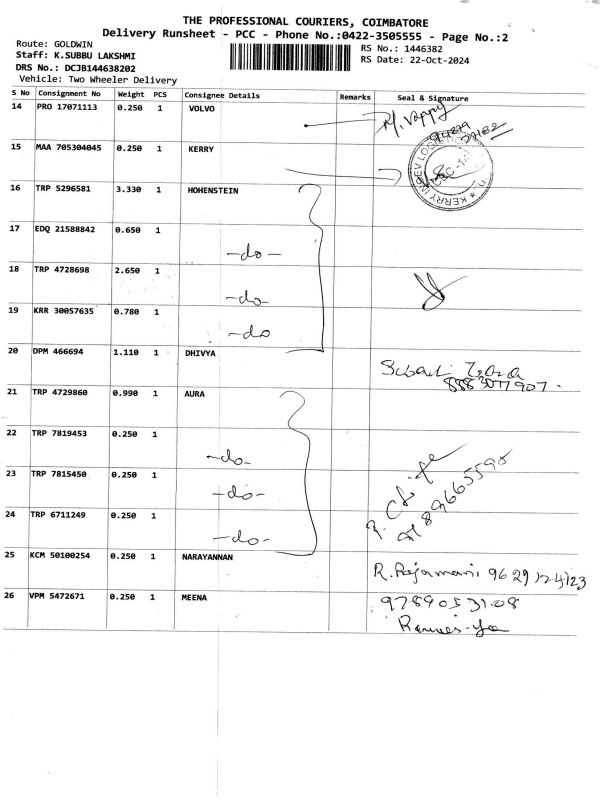 THE PROFESSIONAL COURIERS, COIMBATORE
Delivery Runsheet - PCC - Phone No.:0422-3505555 - Page No.:2
Route: GOLDWIN
RS No.: 1446382
Staff: K.SUBBU LAKSHMI
RS Date: 22-Oct-2024
DRS No.: DCJB144638202
Vehicle: Two Wheeler Delivery
S No Consignment No Weight PCS Consignee Details Remarks Seal & Signature
14 PRO 17071113 0.250 1 VOLVO
15 MAA 705304045 0.250 1 KERRY
KERRY INDEV
16 TRP 5296581 3.330 1 HOHENSTEIN
17 EDQ 21588842 0.650 1
-do-
18 TRP 4728698 2.650 1
-do-
19 KRR 30057635 0.780 1
-do
20 DPM 466694 1.110 1 DHIVYA
8883077907.
21 TRP 4729860 0.990 1 AURA
22 TRP 7819453 0.250 1
-do-
23 TRP 7815450 0.250 1
-do-
24 TRP 6711249 0.250 1
-do-
25 KCM 50100254 0.250 1 NARAYANNAN
R. Rajamani 9629124123
26 VPM 5472671 0.250 1 MEENA
9789053108